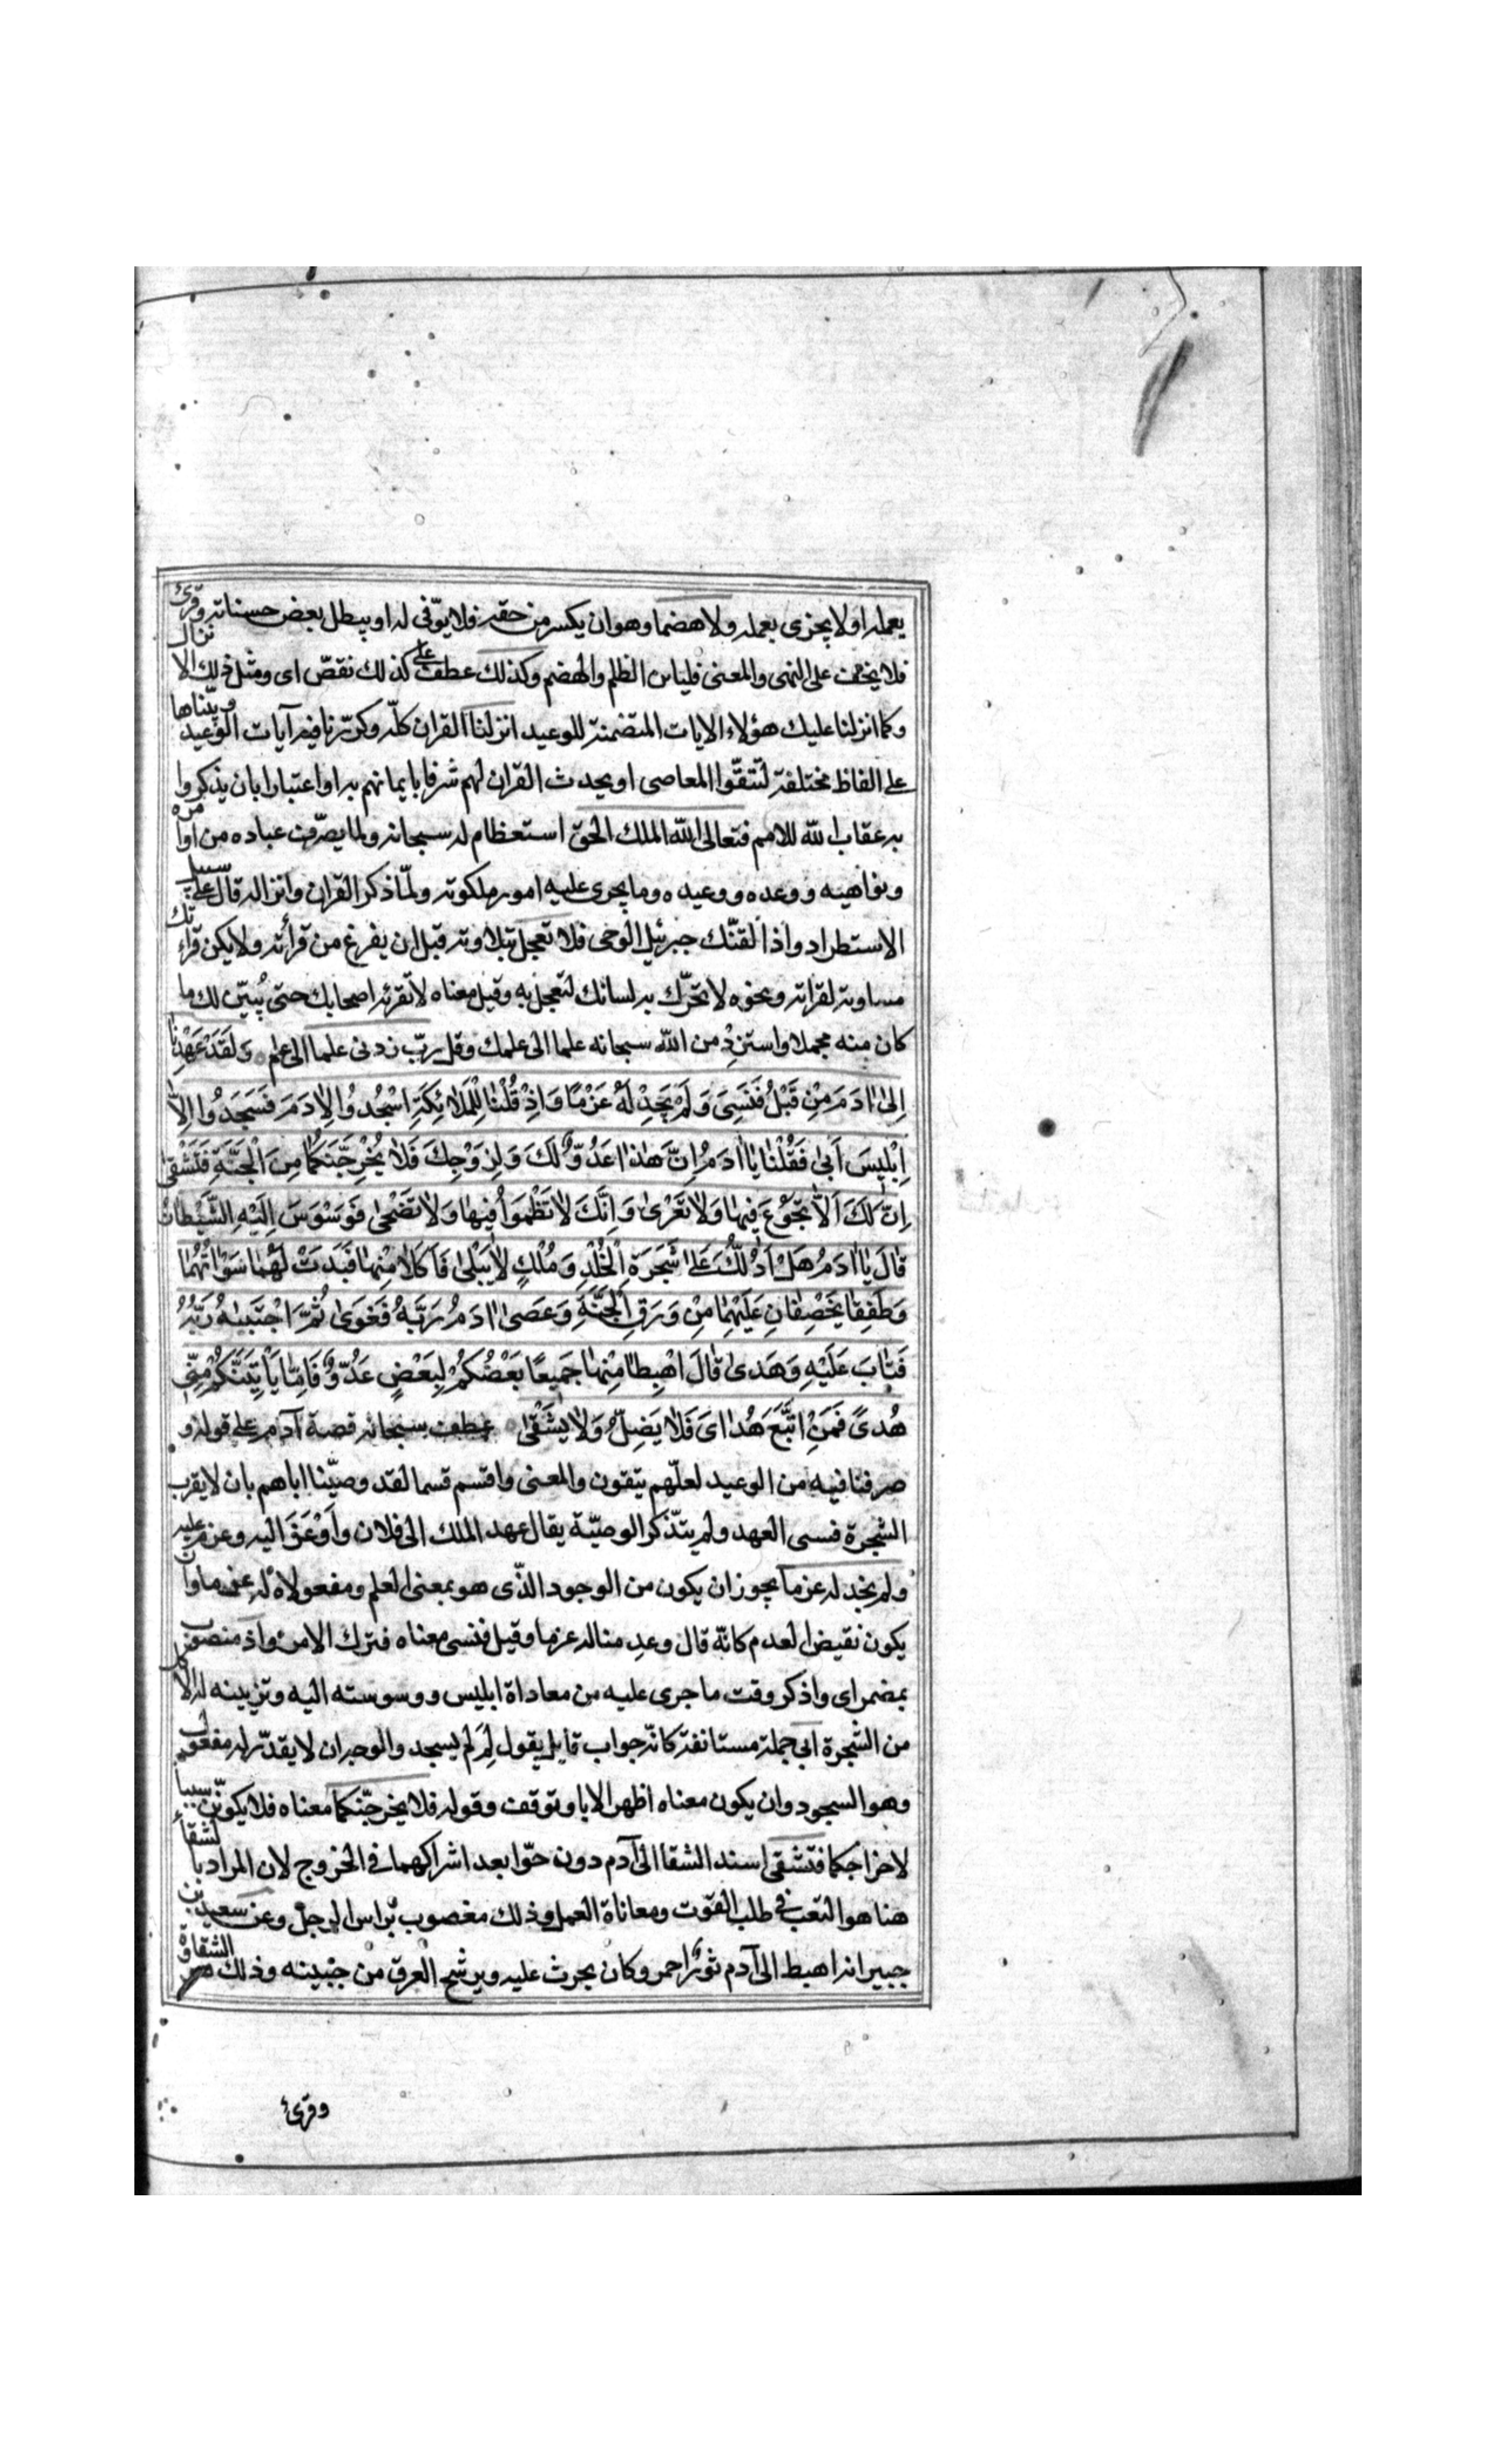 يعمله او لا يجزى بعمله ولا هضما وهو ان يكسر من حقه فلا يوّفى له او يبطل بعض حسناته وقرئ
فلا يخف على النهى والمعنى فليامن الظلم والهضم وكذلك عطف على كذلك نقصّ اى ومثل ذلك الانزال
وكما انزلنا عليك هؤلاء الايات المتضمنة للوعيد انزلنا القران كلّه وكرّرنا فيه آيات الوعيد وبيّناها
على الفاظ مختلفة لتتّقوا المعاصى او يحدث القران لهم شرفا بايمانهم به او اعتبارا بان يذكروا
به عقاب الله للامم فتعالى الله الملك الحق استعظام له سبحانه ولما يصرّف عباده من اوامره
ونواهيه ووعده ووعيده وما يجرى عليه امور ملكوته ولمّا ذكر القران وانزاله قال على سبيل
الاستطراد واذا لقنّك جبرئيل الوحى فلا تعجل بتلاوته قبل ان يفرغ من قرأته ولا يكن قراءتك
مساوية لقراته ونحوه لا تحرّك به لسانك لتعجل به وقيل معناه لا تقرئه اصحابك حتى يُبيّن لك ما
كان منه مجملا واستزِدْ من الله سبحانه علما الى علمك وقل ربّ زدنى علما الى علم وَلَقَدْ عَهِدْنٰا
اِلىٰ اٰدَمَ مِنْ قَبْلُ فَنَسِىَ وَلَمْ نَجِدْ لَهُ عَزْمًا وَاِذْ قُلْنٰا لِلْمَلٰائِكَةِ اسْجُدُوا لِاٰدَمَ فَسَجَدُوا اِلّٰا
اِبْلِيسَ اَبىٰ فَقُلْنٰا يٰا اٰدَمُ اِنَّ هٰذٰا عَدُوٌّ لَكَ وَلِزَوْجِكَ فَلٰا يُخْرِجَنَّكُمٰا مِنَ الْجَنَّةِ فَتَشْقىٰ
اِنَّ لَكَ اَلّٰا تَجُوعَ فِيهٰا وَلٰا تَعْرىٰ وَاِنَّكَ لٰا تَظْمَؤُا فِيهٰا وَلٰا تَضْحىٰ فَوَسْوَسَ اِلَيْهِ الشَّيْطٰانُ
قٰالَ يٰا اٰدَمُ هَلْ اَدُلُّكَ عَلىٰ شَجَرَةِ الْخُلْدِ وَمُلْكٍ لٰا يَبْلىٰ فَاَكَلٰا مِنْهٰا فَبَدَتْ لَهُمٰا سَوْاٰتُهُمٰا
وَطَفِقٰا يَخْصِفٰانِ عَلَيْهِمٰا مِنْ وَرَقِ الْجَنَّةِ وَعَصىٰ اٰدَمُ رَبَّهُ فَغَوىٰ ثُمَّ اجْتَبٰيهُ رَبُّهُ
فَتٰابَ عَلَيْهِ وَهَدىٰ قٰالَ اهْبِطٰا مِنْهٰا جَمِيعًا بَعْضُكُمْ لِبَعْضٍ عَدُوٌّ فَاِمّٰا يَاْتِيَنَّكُمْ مِنِّى
هُدىً فَمَنِ اتَّبَعَ هُدٰاىَ فَلٰا يَضِلُّ وَلٰا يَشْقىٰ عطف سبحانه قصة آدم على قوله و
صرفنا فيه من الوعيد لعلّهم يتقون والمعنى واقسم قسما لقد وصيّنا اباهم بان لا يقرب
الشجرة فنسى العهد ولم يتذكر الوصيّة يقال عهد الملك الى فلان واَوْعَزَ اليه وعزم عليه
ولم نجد له عزما يجوز ان يكون من الوجود الذّى هو بمعنى العلم ومفعولاه له عزما وان
يكون نقيض العدم كانّه قال وعدمنا له عزما وقيل فنسى معناه فترك الامر واذ منصوب
بمضمر اى واذكر وقت ما جرى عليه من معاداة ابليس ووسوسته اليه وتزيينه له الاكل
من الشجرة ابى جملة مستانفة كانّه جواب قايل يقول لِمَ لم يسجد والوجه ان لا يقدّر له مفعول
وهو السجود وان يكون معناه اظهر الابا وتوقف وقوله فلا يخرجنّكما معناه فلا يكوننّ سببا
لاخراجكما فتشقى اسند الشقا الى آدم دون حوّا بعد اشراكهما فى الخروج لان المراد بالشقاء
هنا هو التعب فى طلب القوت ومعاناة العمل وذلك معصوب براس الرجل وعن سعيد بن
جبير انه اهبط الى آدم ثور احمر وكان يحرث عليه ويرشح العرق من جبينه وذلك هو الشقاوة
وقرئ